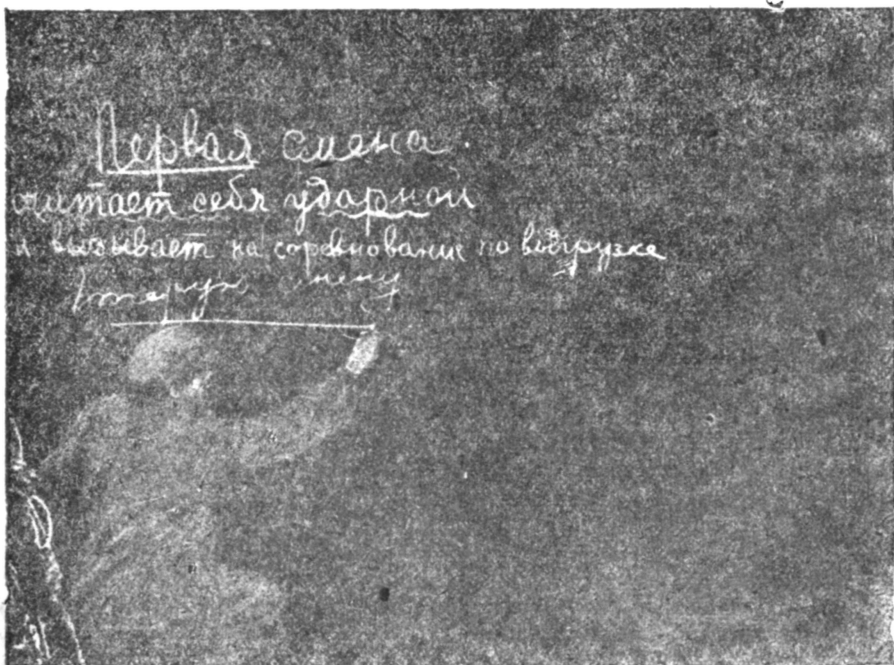 Первая смена
считает себя ударной
и вызывает на соревнование по выгрузке
Вторую смену